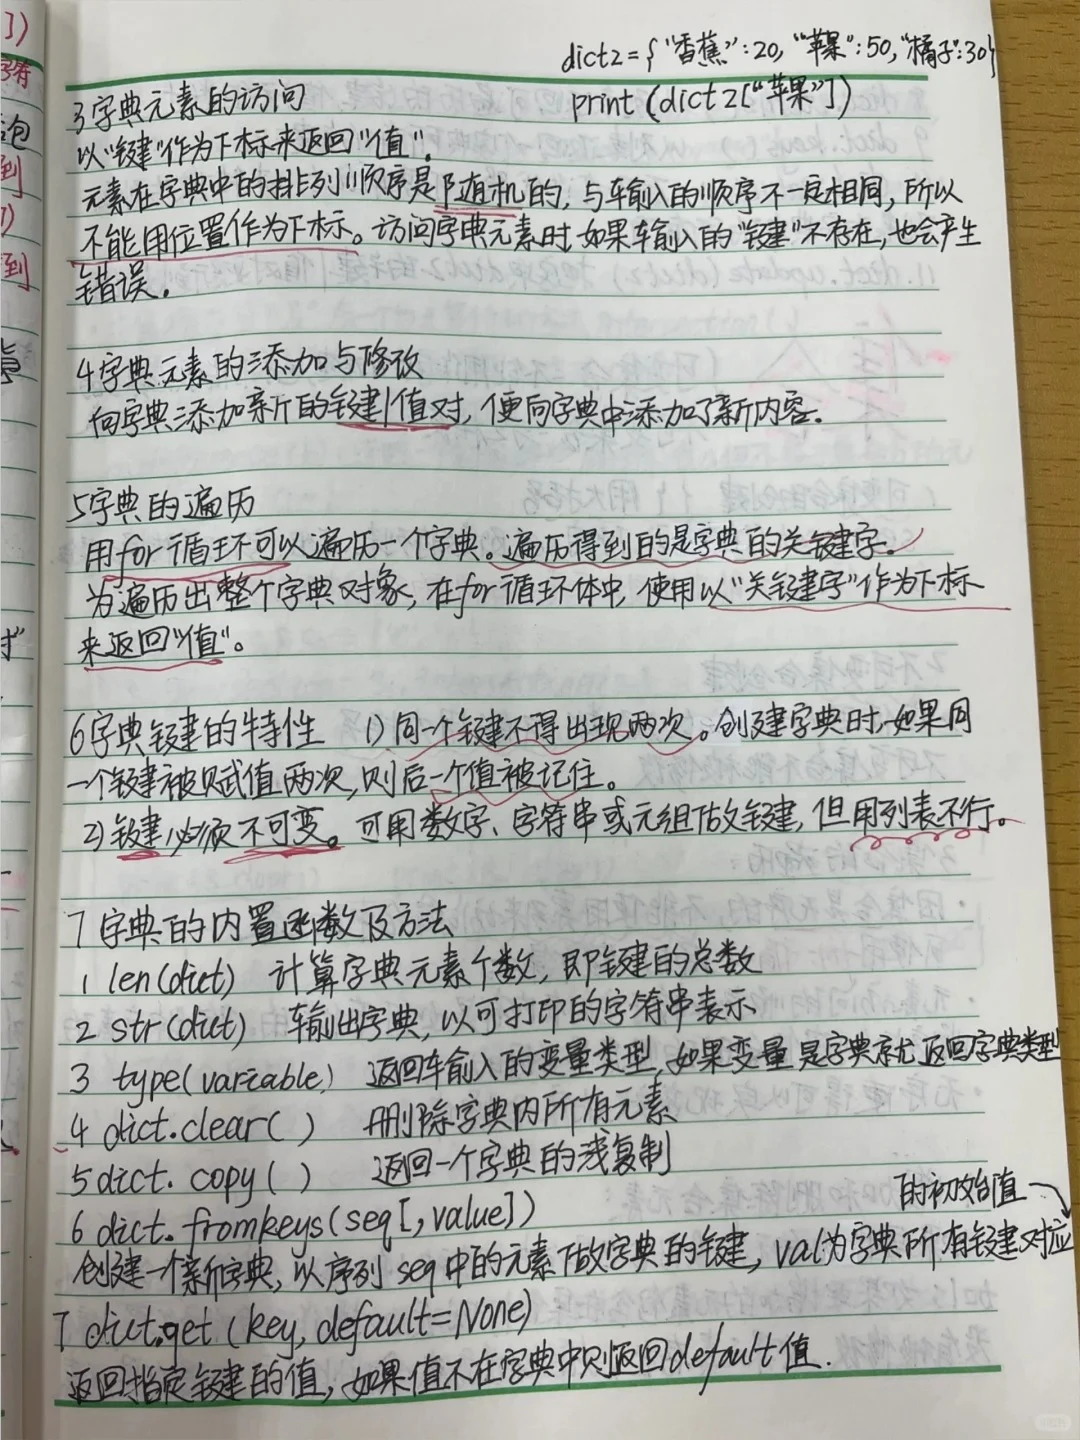 dict2={"香蕉":20,"苹果":50,"橘子":30}
print(dict2["苹果"])
3字典元素的访问
以"键"作为下标来返回"值"。
元素在字典中的排列顺序是随机的,与输入的顺序不一定相同,所以
不能用位置作为下标。访问字典元素时,如果输入的"键"不存在,也会产生
错误。
4字典元素的添加与修改
向字典添加新的键/值对,便向字典中添加了新内容。
5字典的遍历
用for循环可以遍历一个字典。遍历得到的是字典的关键字。
为遍历出整个字典对象,在for循环体中,使用以"关键字"作为下标
来返回"值"。
6字典键的特性 1)同一个键不得出现两次。创建字典时,如果同
一个键被赋值两次,则后一个值被记住。
2)键必须不可变。可用数字、字符串或元组做键,但用列表不行。
7字典的内置函数及方法
1 len(dict) 计算字典元素个数,即键的总数
2 str(dict) 输出字典,以可打印的字符串表示
3 type(variable) 返回输入的变量类型,如果变量是字典就返回字典类型
4 dict.clear() 删除字典内所有元素
5 dict.copy() 返回一个字典的浅复制
6 dict.fromkeys(seq[,value])
的初始值
创建一个新字典,以序列seq中的元素做字典的键,val为字典所有键对应
7 dict.get(key,default=None)
返回指定键的值,如果值不在字典中则返回default值.